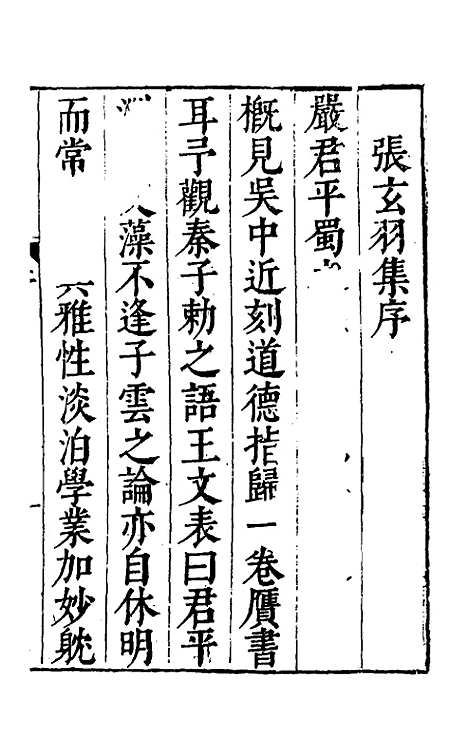 張玄羽集序
嚴君平蜀
槪見吳中近刻道德指歸一卷贋書
耳予觀秦子勅之語王文表曰君平
藻不逢子雲之論亦自休明
而常 雅性淡泊學業加妙躭